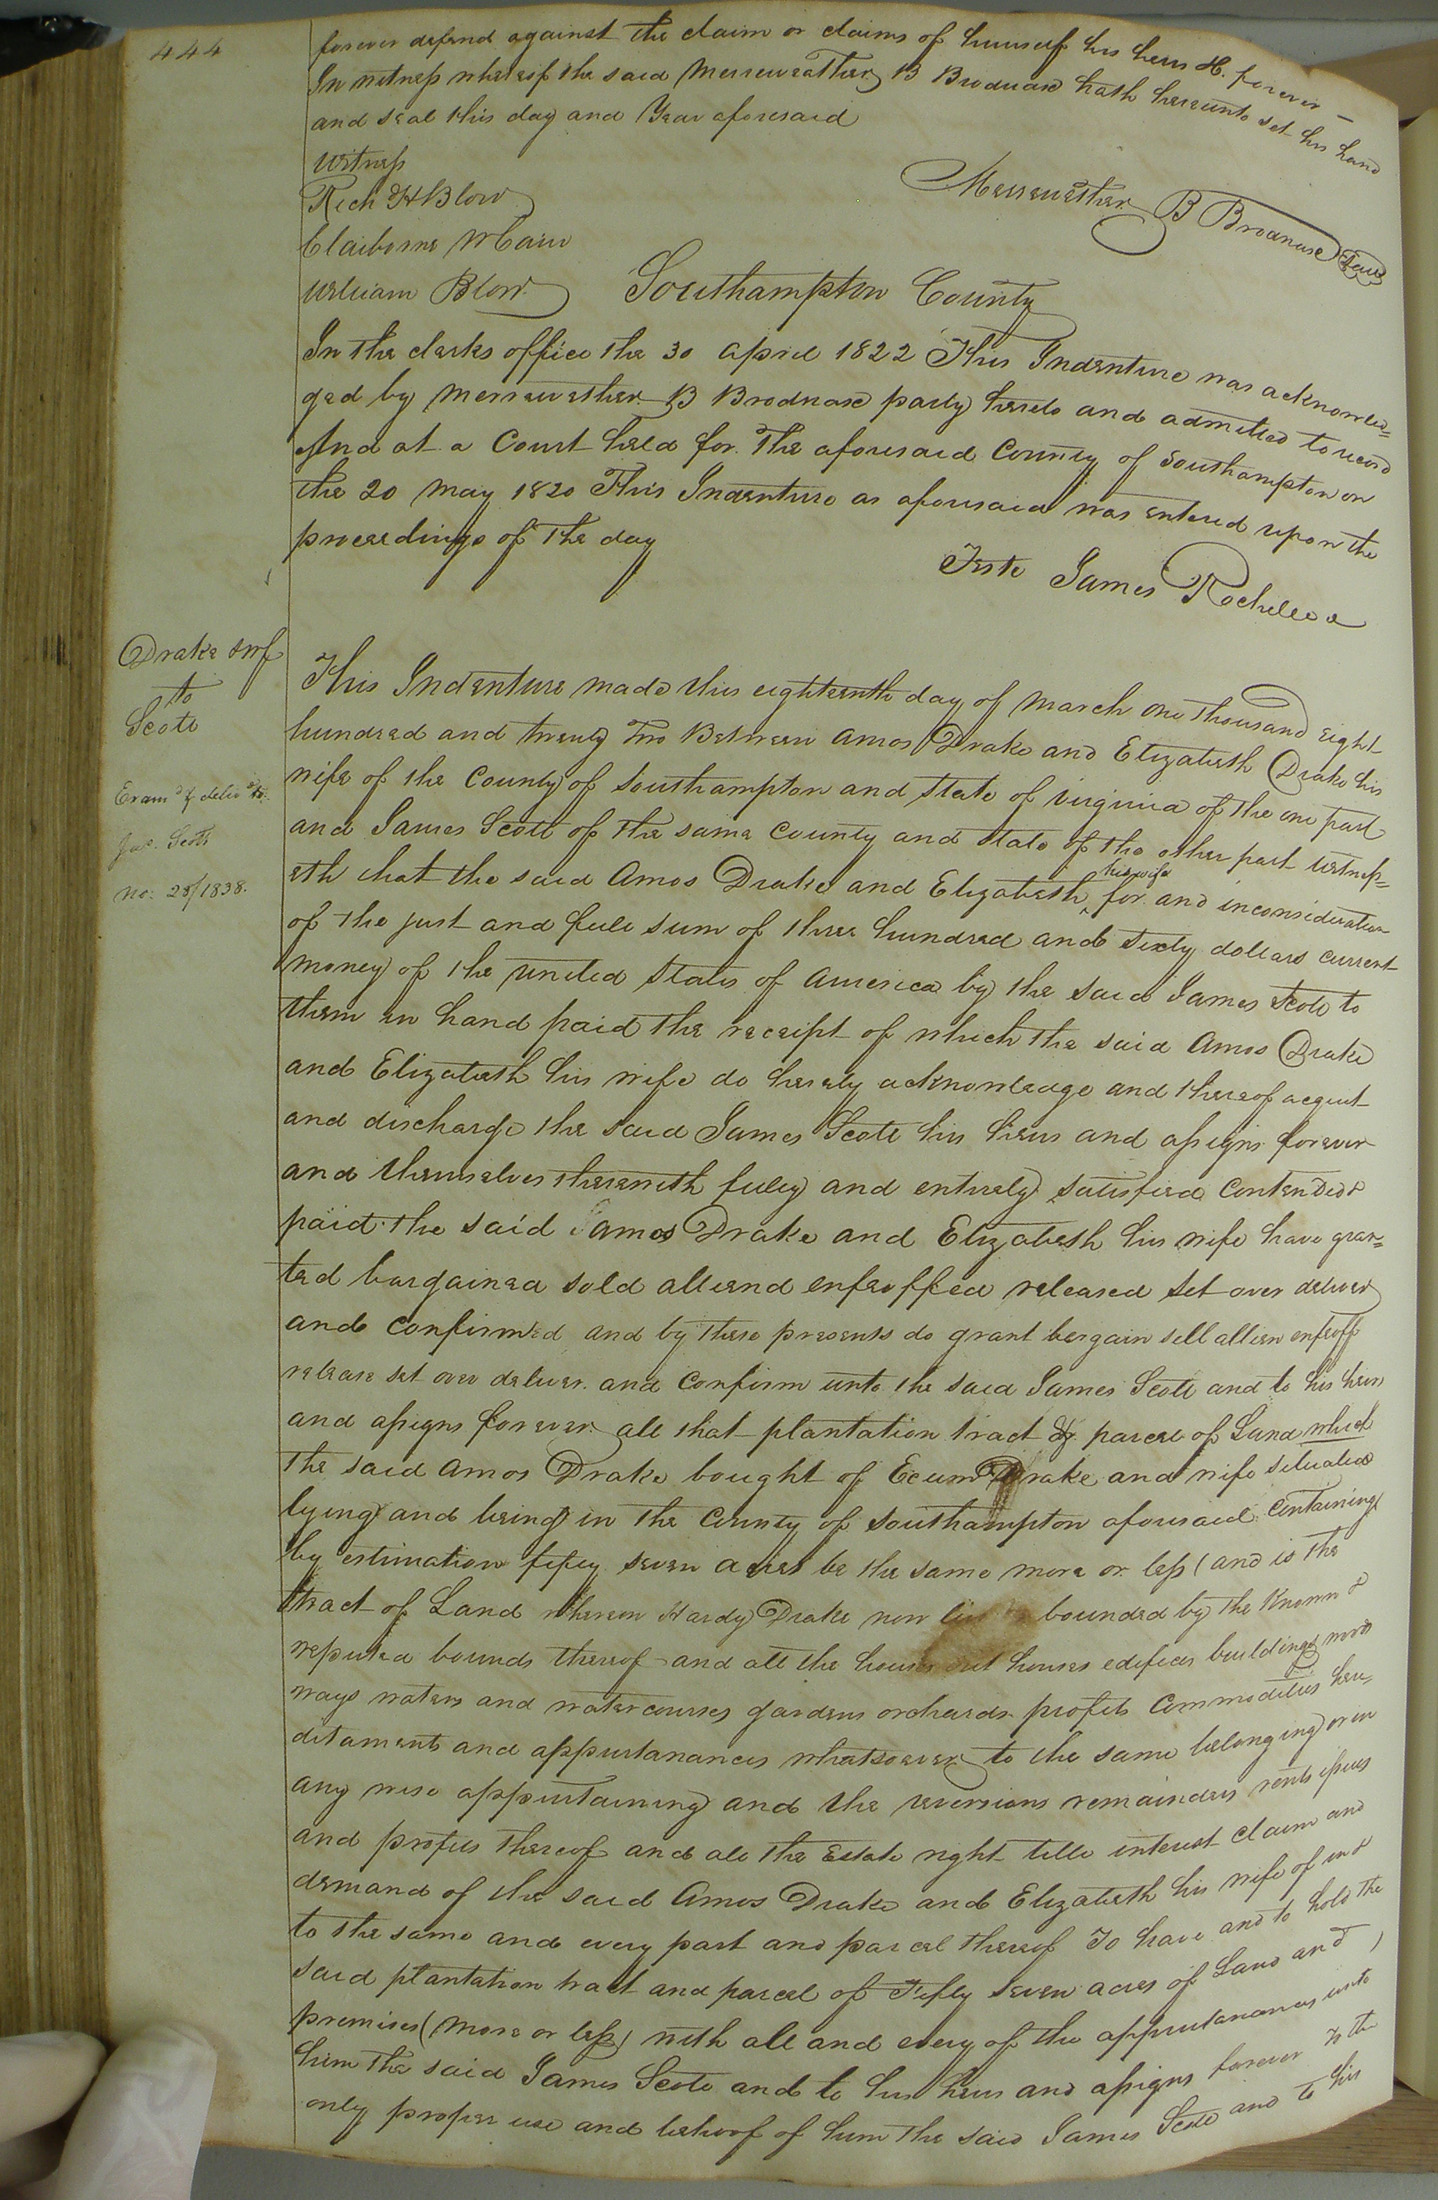 444
forever defend against the claim or claims of himself his heirs &c. forever —
In witness whereof the said Merrewether B Brodnax hath hereunto set his hand
and seal this day and Year aforesaid
Witness
Merrewether B Brodnax Seal
Rich H Blow
Claiborne
William Blow
Southampton County
In the clerks office the 30 april 1822 This Indenture was acknowled=
ged by Merrewether B Brodnax party hereto and admitted to record
And at a Court held for The aforesaid County of Southampton on
the 20 May 1820 This Indenture as aforesaid was entered upon the
proceedings of the day
Teste James Rochelle
Drake & wf
to
Scott
Exam d & deliv d to.
Jas. Scott
No: 28/1838.
This Indenture made this eighteenth day of March one thousand eight
hundred and twenty Two Between Amos Drake and Elizabeth Drake his
wife of the County of Southampton and State of Virginia of the one part
and James Scott of the same County and State of the other part witness=
eth that the said Amos Drake and Elizabeth his wife for and inconsideration
of the just and full sum of three hundred and sixty dollars current
money of the United States of America by the said James Scott to
them in hand paid the receipt of which the said Amos Drake
and Elizabeth his wife do hereby acknowledge and thereof acquit
and discharge the said James Scott his hiers and assigns forever
and themselves therewith fully and entirely satisfied contented &
paid the said Amos Drake and Elizabeth his wife have gran=
ted bargained sold aliend enfeoffed released set over deliver
and confirmed and by these presents do grant bargain sell alien enfeoff
release set over deliver and confirm unto the said James Scott and to his heirs
and assigns forever all that plantation tract & parcel of Land which
the said Amos Drake bought of Drake and wife situated
lying and being in the County of Southampton aforesaid containing
by estimation fifty seven acres be the same more or less (and is the
tract of Land whereon Hardy Drake now bounded by the Known &
reputed bounds thereof and all the houses out houses edifices buildings woods
ways waters and watercourses gardens orchards profits commodities here=
ditaments and appurtanances whatsoever to the same belonging or in
any wise appurtaining and the reversions remainders rents issues
and profits thereof and all the Estate right title interest claim and
demand of the said Amos Drake and Elizabeth his wife of in &
to the same and every part and parcel thereof To have and to hold the
said plantation tract and parcel of Fifty seven acres of Land and
premises (more or less) with all and every of the appurtanances unto
him the said James Scott and to his heirs and assigns forever To the
only proper use and behoof of him the said James Scott and to his